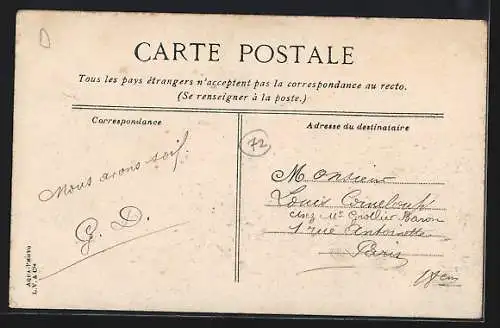 D
CARTE POSTALE
Tous les pays étrangers n'acceptent pas la correspondance au recto.
(Se renseigner à la poste.)
Correspondance
Adresse du destinataire
72
Nous avons soif.
G. D.
Monsieur
Louis
chez Mr Grollier Baron
1 rue Antoinette
Paris
18em
L.V. & Cie